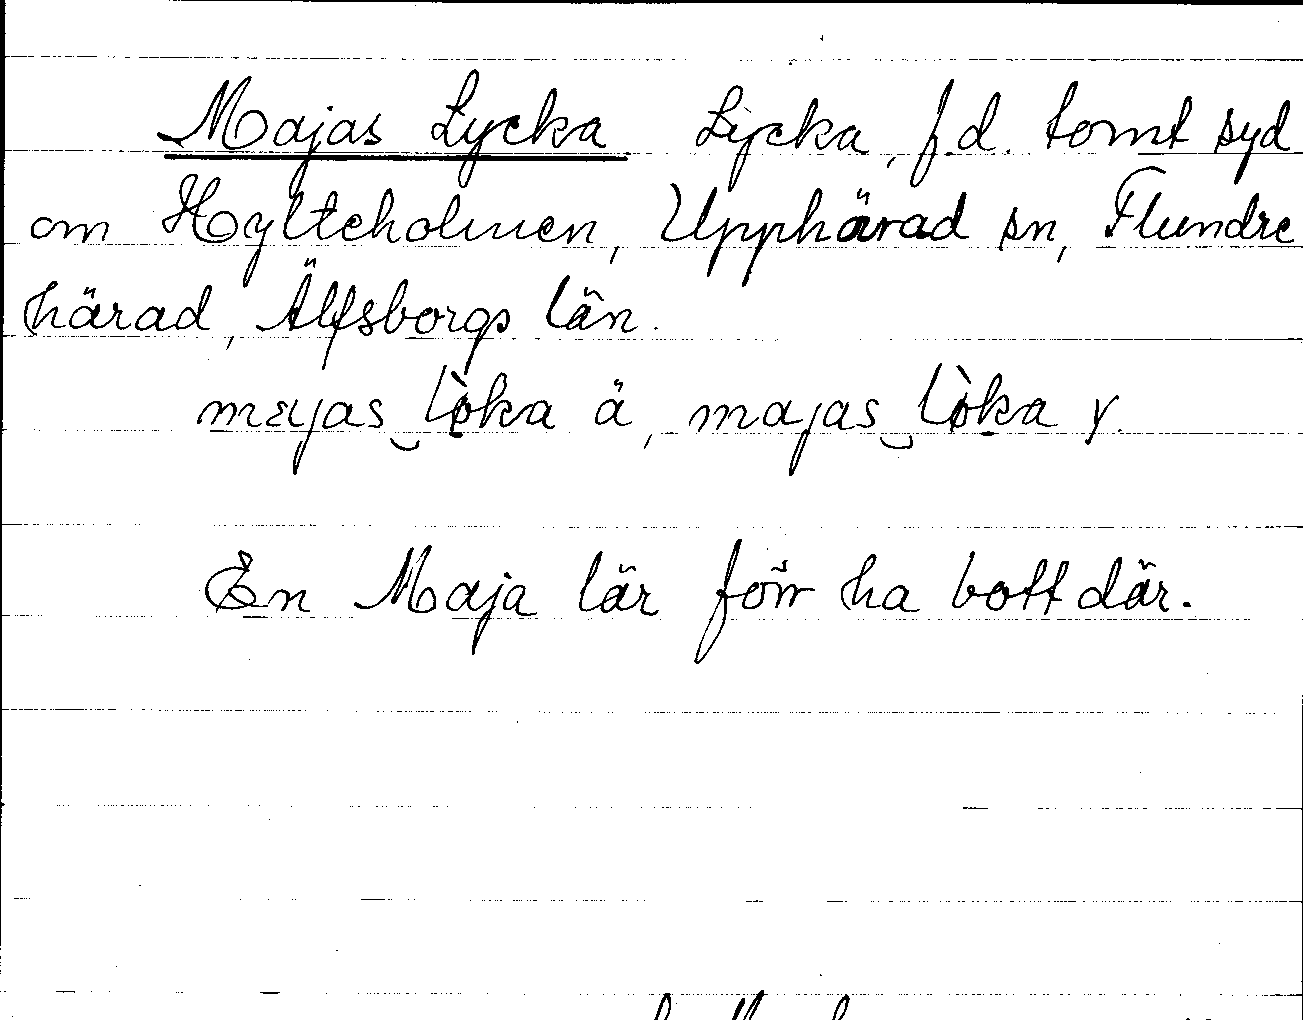 Majas Lycka Lycka, f.d. tomt syd
om Hylteholmen, Upphärad sn, Flundre
härad, Älfsborgs län.
mɛjas lö̀ka ä, majas lö̀ka y.
En Maja lär förr ha bott där.